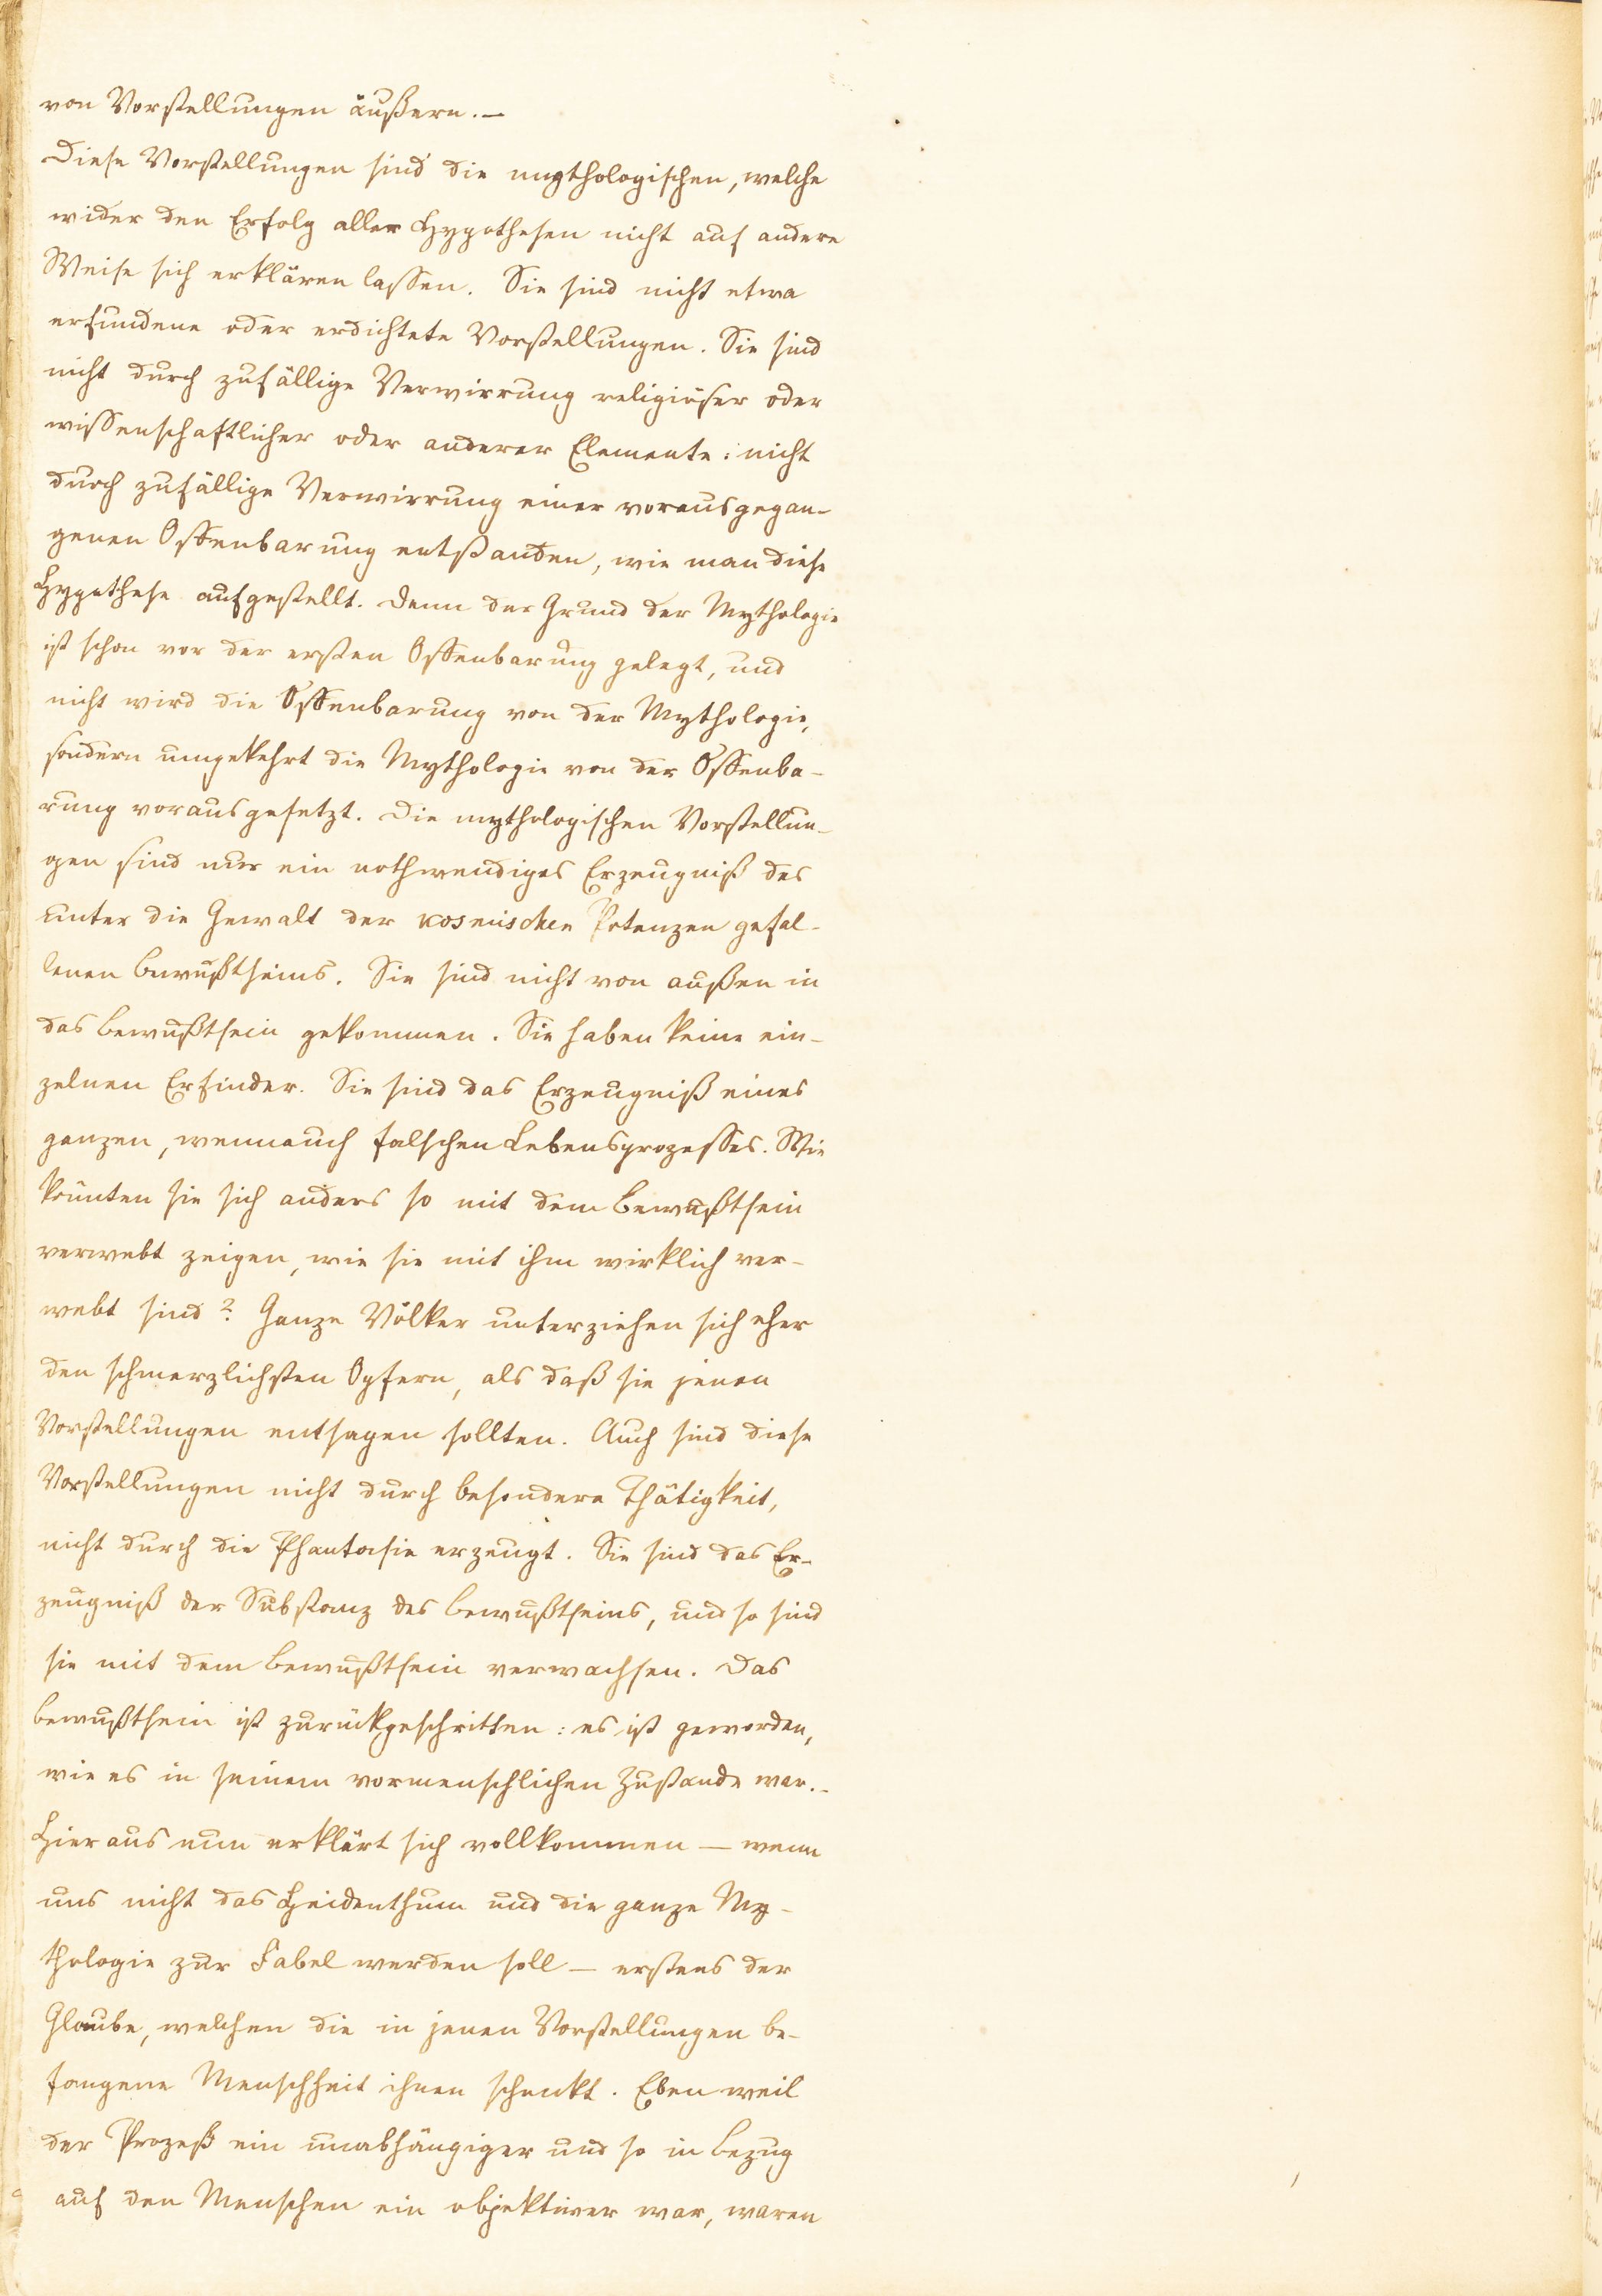 von Vorstellungen äußern. —
Diese Vorstellungen sind die mythologischen, welche
wider den Erfolg aller Hypothesen nicht auf andere
Weise sich erklären lassen. Sie sind nicht etwa
erfundene oder erdichtete Vorstellungen. Sie sind
nicht durch zufällige Verwirrung religiöser oder
wissenschaftlicher oder anderer Elemente: nicht
durch zufällige Verwirrung einer vorausgegan-
genen Offenbarung entstanden, wie man diese
Hypothese aufgestellt. Denn der Grund der Mythologie
ist schon vor der ersten Offenbarung gelegt, und
nicht wird die Offenbarung von der Mythologie,
sondern umgekehrt die Mythologie von der Offenba-
rung vorausgesetzt. Die mythologischen Vorstellun-
gen sind nur ein nothwendiges Erzeugniß des
unter die Gewalt der kosmischen Potenzen gefal-
lenen Bewußtseins. Sie sind nicht von außen in
das Bewußtsein gekommen. Sie haben keine ein-
zelnen Erfinder. Sie sind das Erzeugniß eines
ganzen, wennauch falschen Lebensprozesses. Wie
könnten sie sich anders so mit dem Bewußtsein
verwebt zeigen, wie sie mit ihm wirklich ver-
webt sind? Ganze Völker unterziehen sich eher
den schmerzlichsten Opfern, als daß sie jenen
Vorstellungen entsagen sollten. Auch sind diese
Vorstellungen nicht durch besondere Thätigkeit,
nicht durch die Phantasie erzeugt. Sie sind das Er-
zeugniß der Substanz des Bewußtseins, und so sind
sie mit dem Bewußtsein verwachsen. Das
Bewußtsein ist zurückgeschritten: es ist geworden,
wie es in seinem vormenschlichen Zustande war. -
Hieraus nun erklärt sich vollkommen — wenn
uns nicht das Heidenthum und die ganze My-
thologie zur Fabel werden soll — erstens der
Glaube, welchen die in jenen Vorstellungen be-
fangene Menschheit ihnen schenkt. Eben weil
der Prozeß ein unabhängiger und so in Bezug
auf den Menschen ein objektiver war, waren